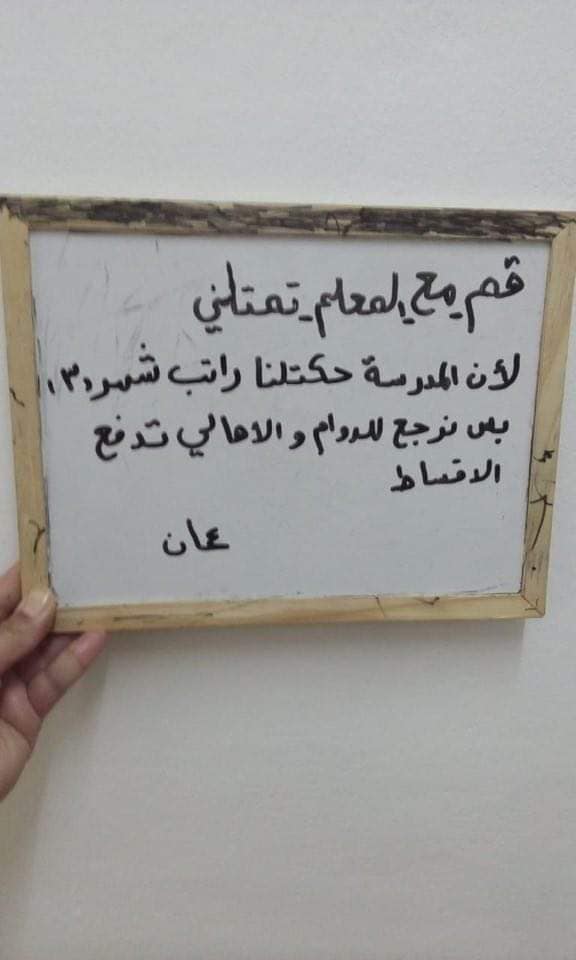 قم_مع_المعلم_تمثلني
لأن المدرسة حكتلنا راتب شهر (٣)
بس نرجع للدوام و الاهالي تدفع
الاقساط
عمان